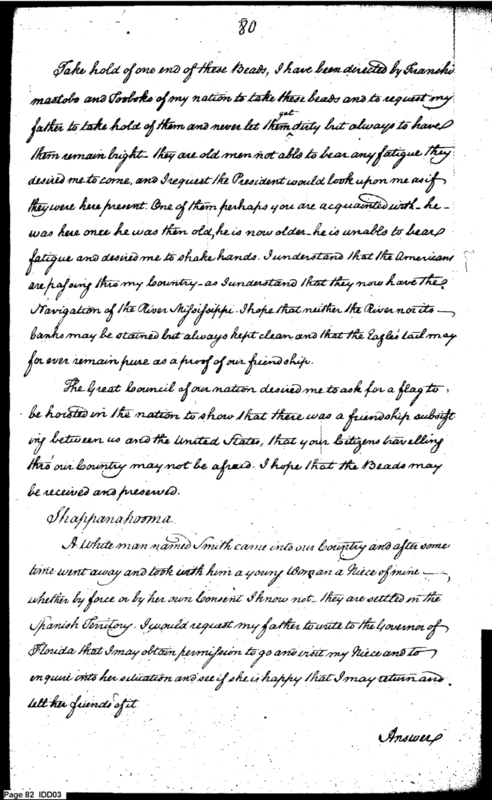 80
Take hold of one end of these Beads, I have been directed by Franchi
mastobo and Tooboks of my nation to take these beads and to request my
father to take hold of them and never let them get dirty but always to have
them remain bright - they are old men not able to bear any fatigue they
desired me to come, and I request the President would look upon me as if
they were here present. One of them perhaps you are acquainted with - he -
was here once he was then old, he is now older - he is unable to bear
fatigue and desired me to shake hands. I understand that the Americans
are passing thro my Country - as I understand that they now have the
Navigation of the River Missisippi. I hope that neither the River nor its -
banks may be stained but always kept clean and that the Eagles tail may
for ever remain pure as a proof of our friendship.
The Great Council of our nation desired me to ask for a flag to
be hoisted in the nation to show that there was a friendship subsist
ing between us and the United States, that your Citizens travelling
thro' our Country may not be afraid. I hope that the Beads may
be received and preserved.
Shappanahooma
A White man named Smith came into our Country and after some
time went away and took with him a young Woman a Niece of mine -
whether by force or by her own Consent I know not - they are settled in the
Spanish Territory. I would request my father to write to the Governor of
Florida that I may obtain permission to go and visit my Niece and to
enquire into her situation and see if she is happy that I may return and
tell her friends of it
Answer
Page 82 IDD03